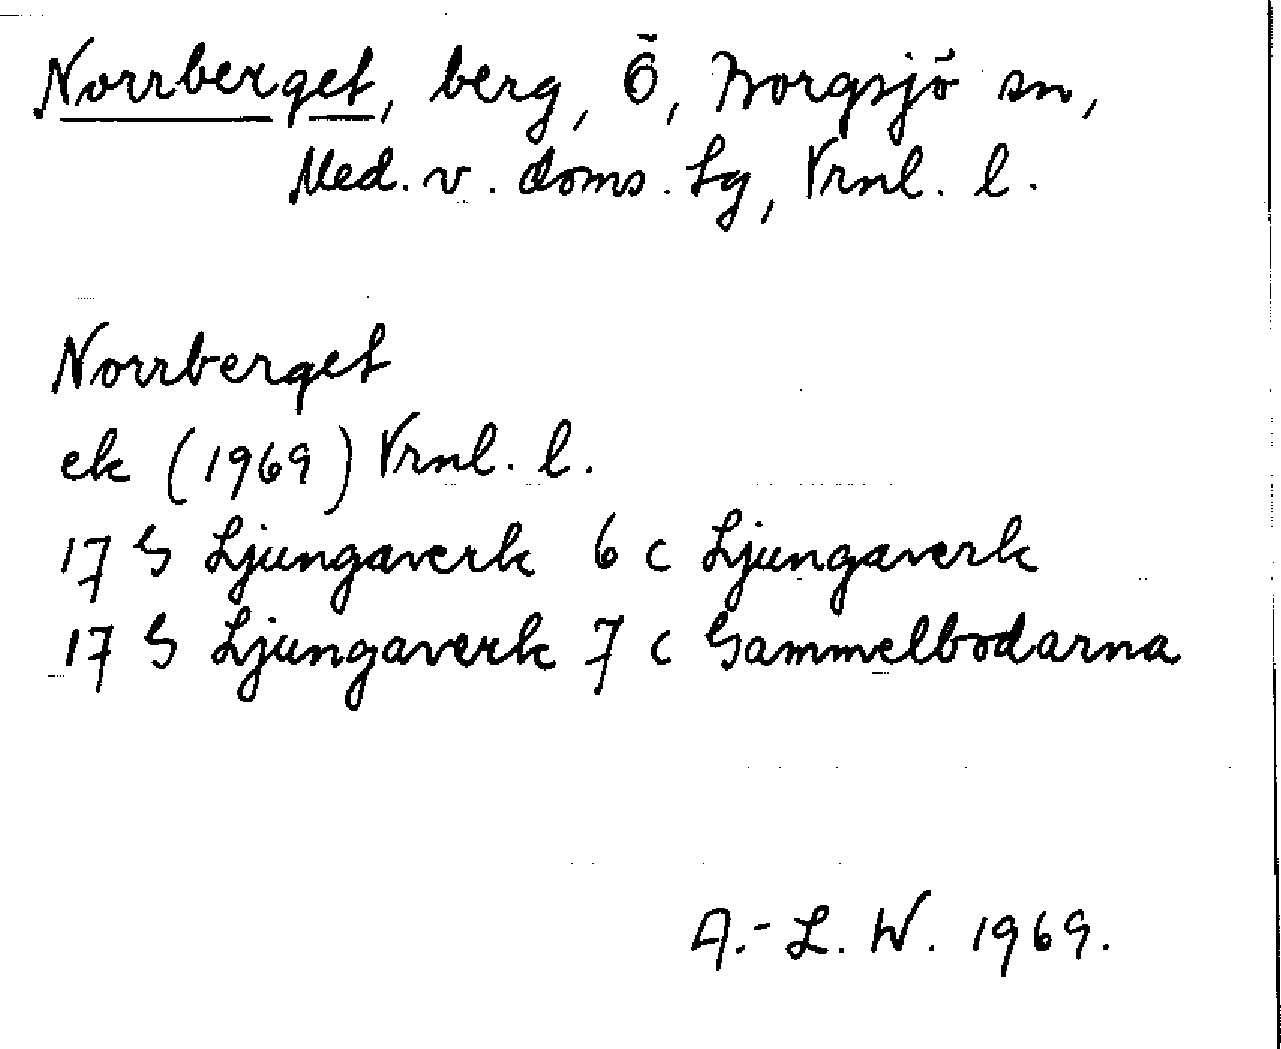 Norrberget, berg, Ö, Borgsjö sn,
Med. v. doms. Lg, Vrnl. l.
Norrberget
ek (1969) Vrnl. l.
17 G Ljungaverk 6 c Ljungaverk
17 G Ljungaverk 7 c Gammelbodarna
A.-L. W. 1969.